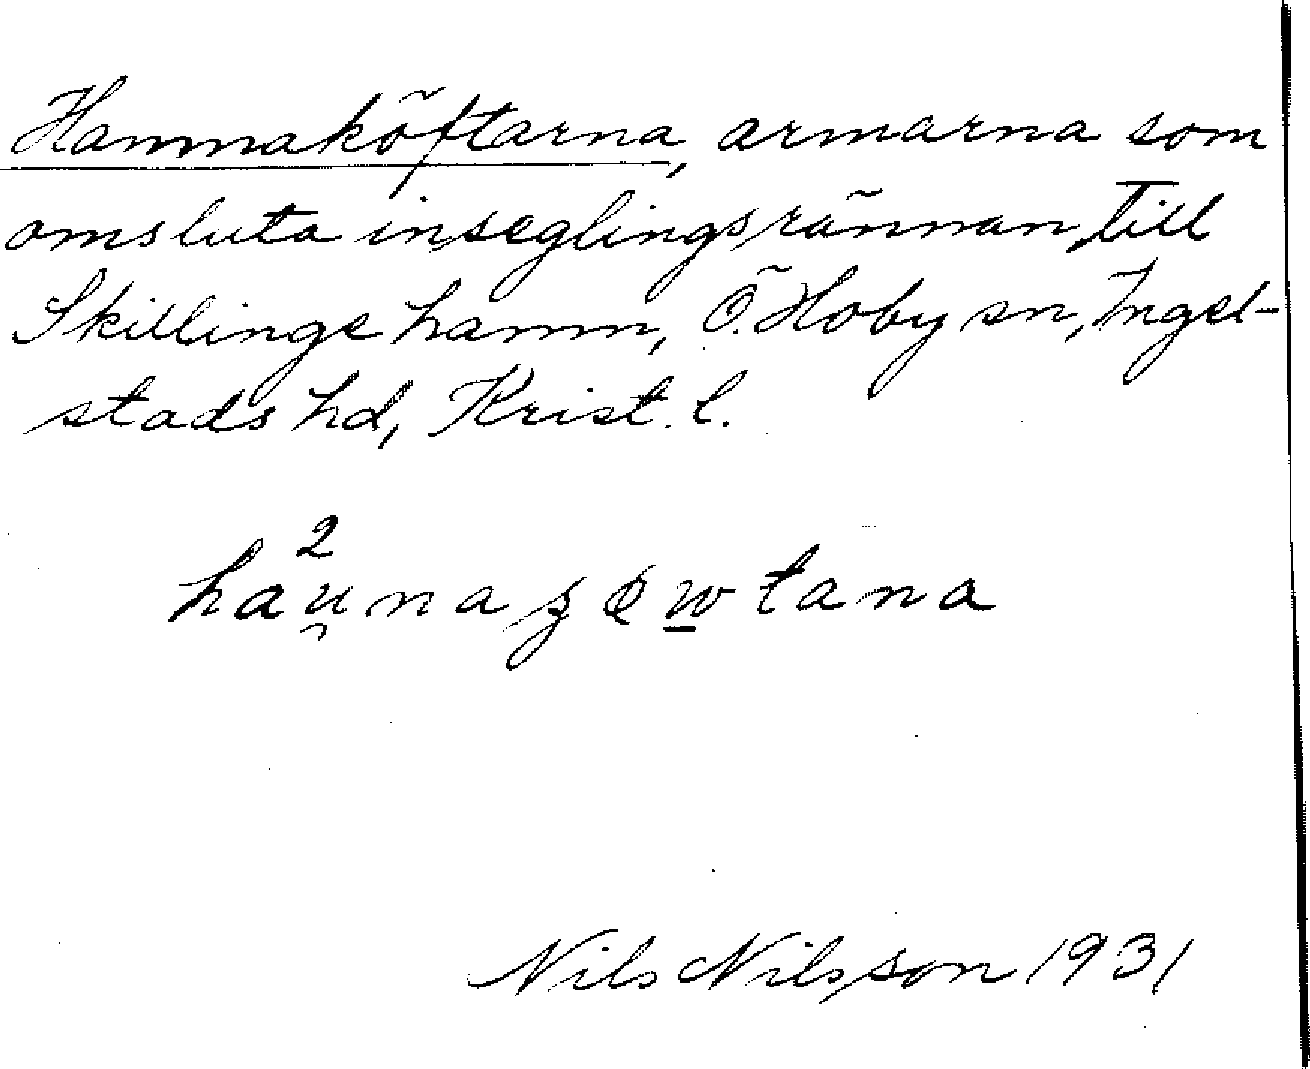 Hamnaköftarna, armarna som
omsluta inseglingsrännan till
Skillinge hamn, Ö. Hoby sn, Ingel-
stads hd, Krist. l.
2
Nils Nilsson 1931